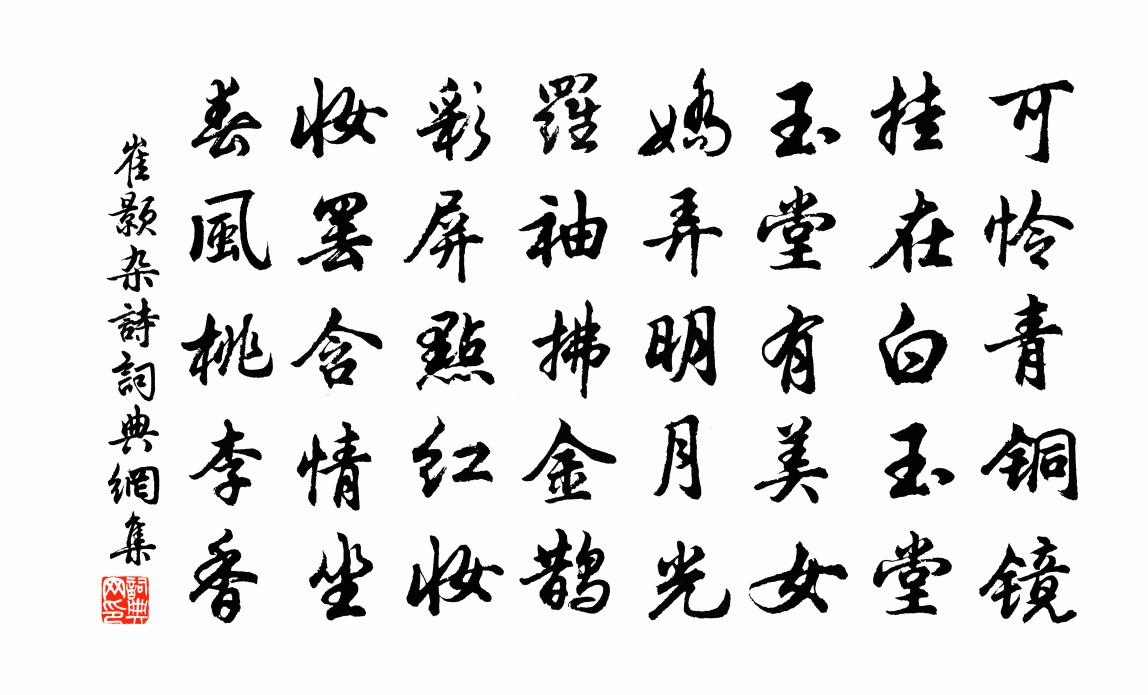 可怜青铜镜
挂在白玉堂
玉堂有美女
娇弄明月光
羅袖拂金鹊
彩屏點红妝
妝罢含情坐
春風桃李香
崔颢杂詩詞典網集
詞典網印